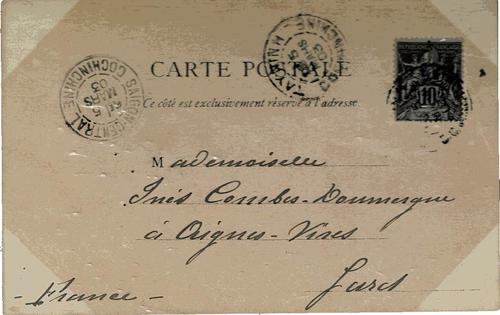 CARTE POSTALE
Ce côté est exclusivement réservé à l'adresse
SAIGON-CENTRAL
5
MARS
03
COCHINCHINE
TAYNINH
COCHINCHINE
10
Mademoiselle
Inès Combes-Doumergue
à Aigues-Vives
Gard
- France -